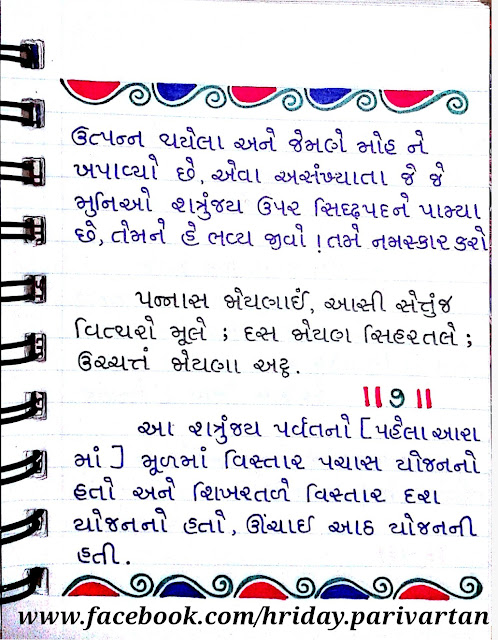 ઉત્પન્ન થયેલા અને જેમણે મોહ ને
ખપાવ્યો છે, એવા અસંખ્યાતા જે જે
મુનિઓ શત્રુંજય ઉપર સિદ્ધપદને પામ્યા
છે, તેમને હે ભવ્ય જીવો ! તમે નમસ્કાર કરો
પન્નાસ જોયણાઈં, આસી સેત્તુંજ
વિત્થરો મૂલે ; દસ જોયણ સિહરતલે ;
ઉચ્ચત્તં જોયણા અટ્ઠ.
||૭||
આ શત્રુંજય પર્વતનો [પહેલા આરા
માં] મૂળમાં વિસ્તાર પચાસ યોજનનો
હતો અને શિખરતળે વિસ્તાર દશ
યોજનનો હતો, ઊંચાઈ આઠ યોજનની
હતી.
www.facebook.com/hriday.parivartan